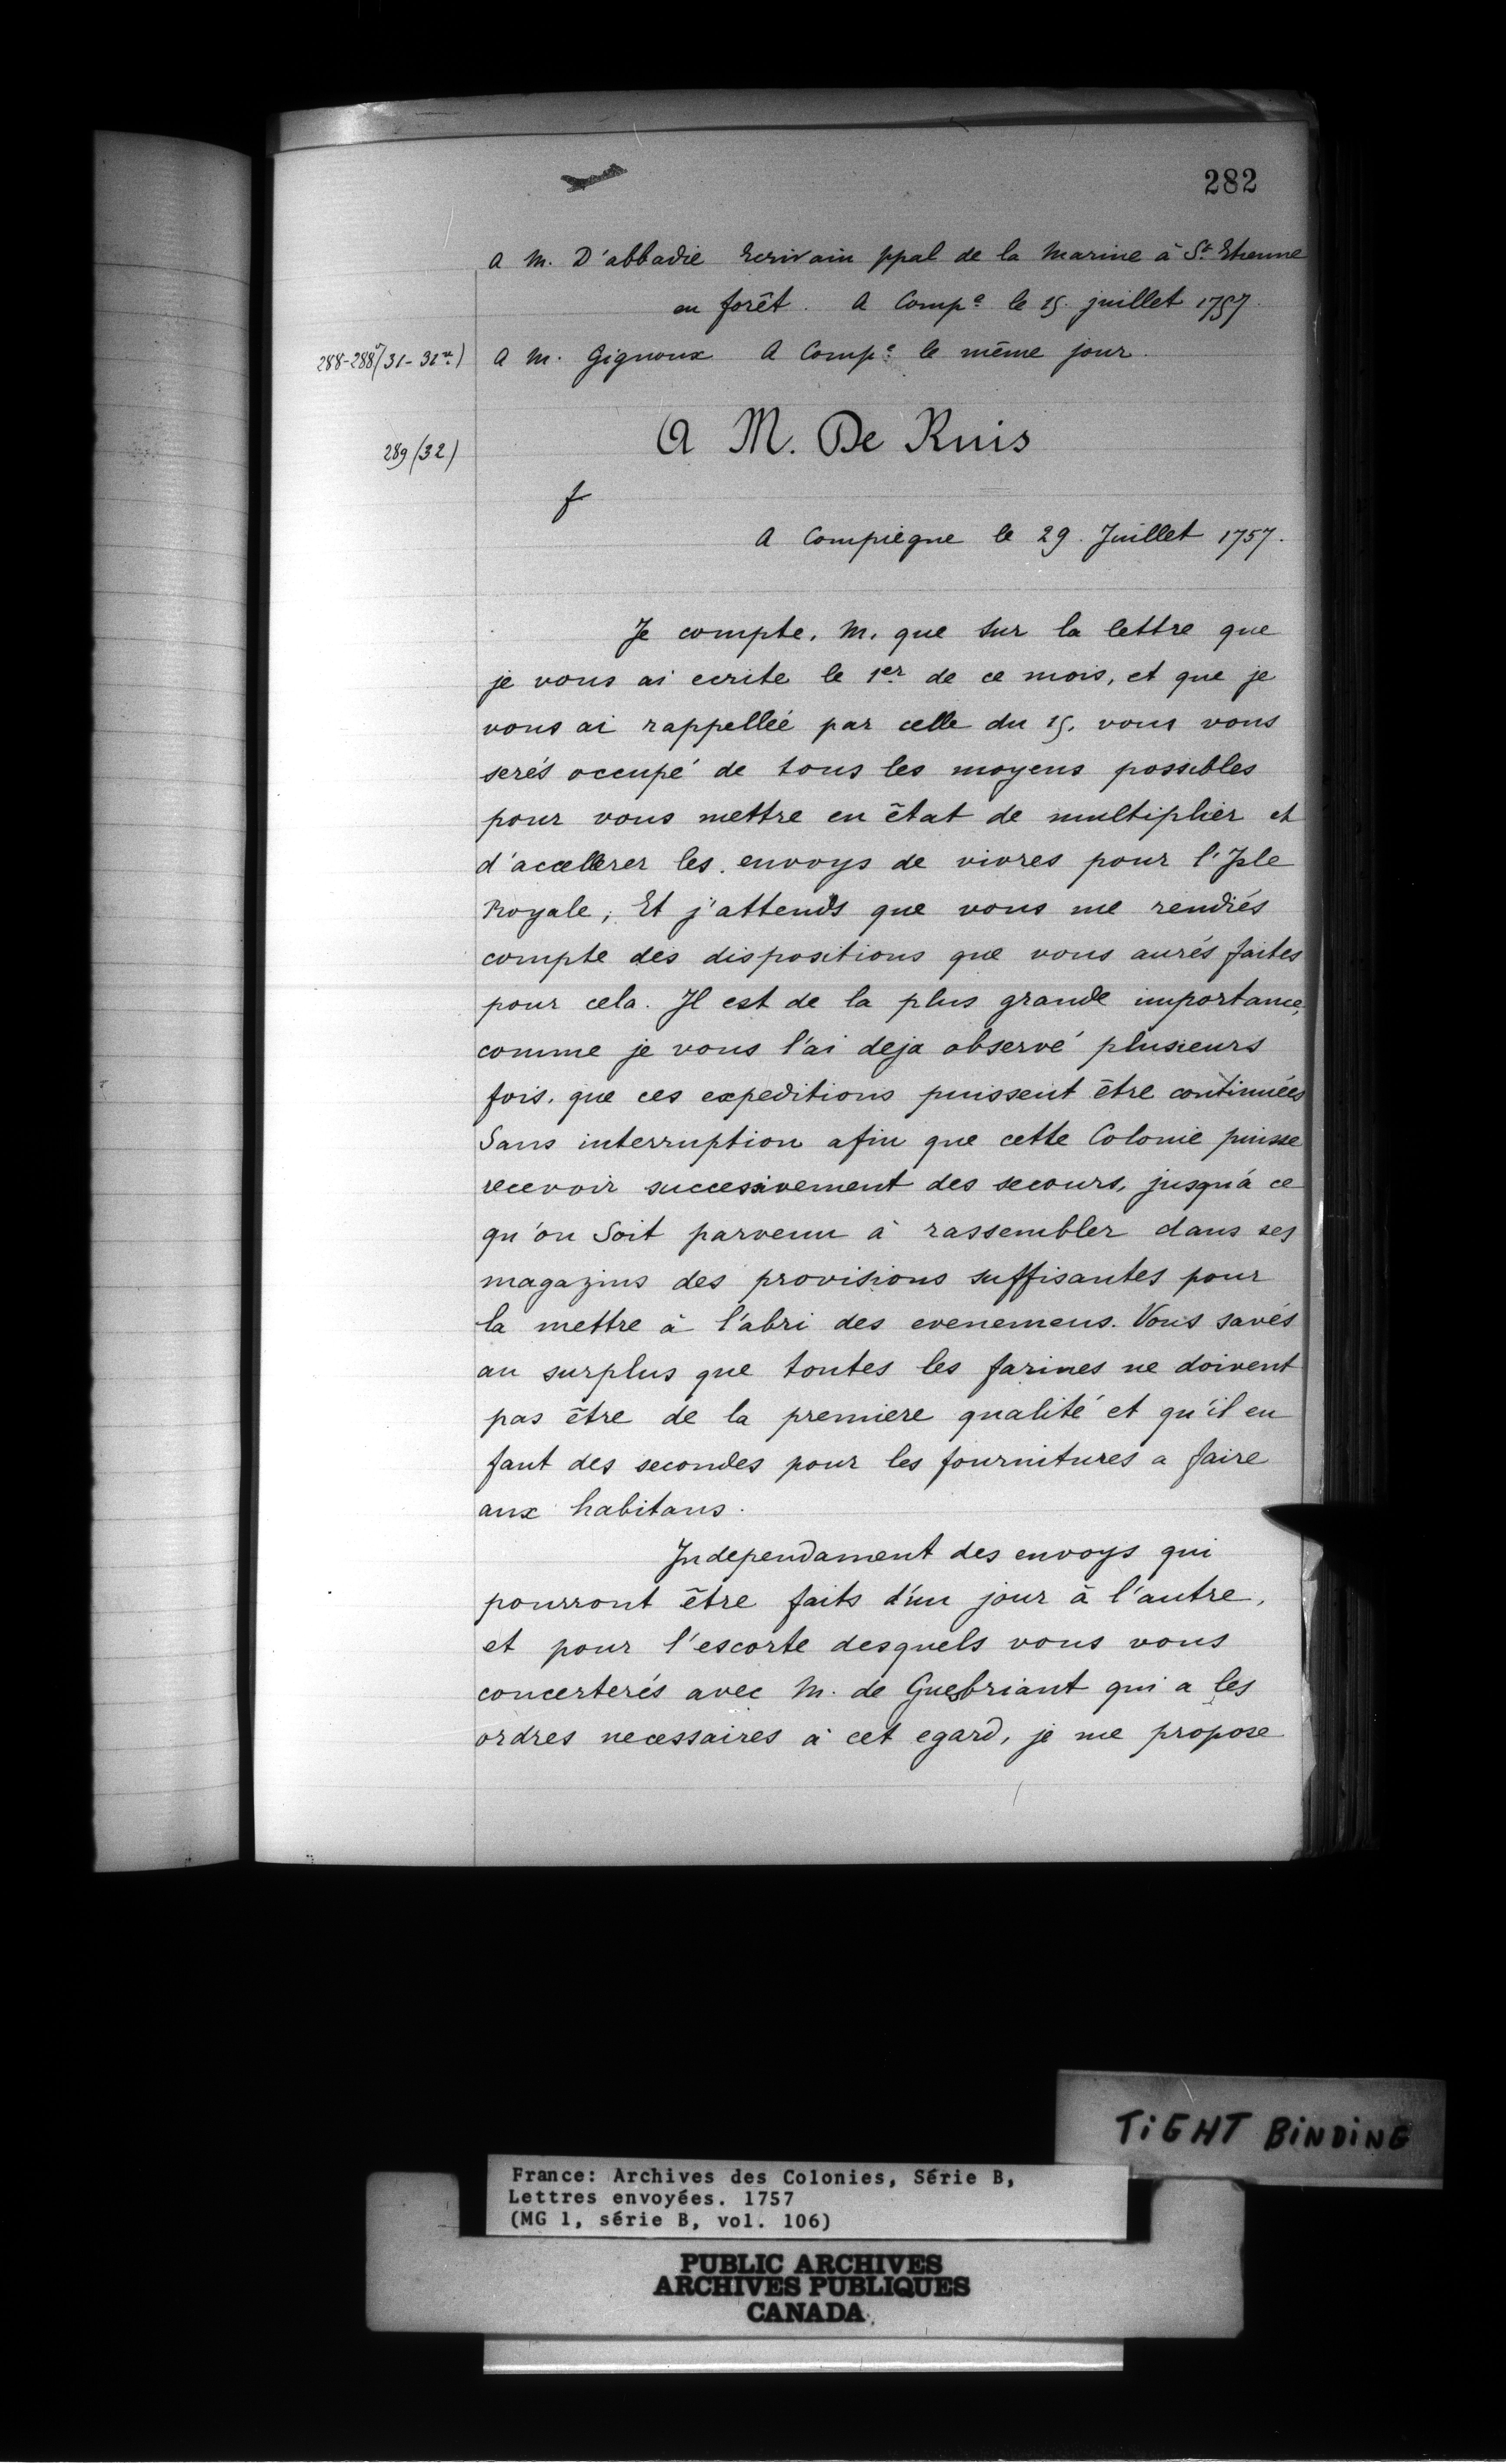 282
A M. D'abbadie Ecrivain ppal de la Marine à St. Etienne
en forêt. A Comp.e le 15. juillet 1757.
288-288v(31-31vo) A M. Gignoux A Comp.e le même jour.
289 (32) A M. De Ruis
f
A Compiegne le 29. Juillet 1757.
Je compte, M. que sur la lettre que
je vous ai ecrite le 1er de ce mois, et que je
vous ai rappellée par celle du 15. vous vous
serés occupé de tous les moyens possibles
pour vous mettre en êtat de multiplier et
d'accellerer les envoys de vivres pour l'Isle
Royale, Et j'attends que vous me rendiés
compte des dispositions que vous aurés faites
pour cela. Il est de la plus grande importance,
comme je vous l'ai deja observé plusieurs
fois, que ces expeditions puissent être continuées
Sans interruption afin que cette Colonie puisse
recevoir successivement des secours, jusqu'à ce
qu'on Soit parvenu à rassembler dans ses
magazins des provisions suffisantes pour
la mettre à l'abri des evenemens. Vous savés
au surplus que toutes les farines ne doivent
pas être de la premiere qualité et qu'il en
faut des secondes pour les fournitures a faire
aux habitans.
Independament des envoys qui
pourront être faits d'un jour à l'autre,
et pour l'escorte desquels vous vous
concerterés avec M. de Guesbriant qui a les
ordres necessaires à cet egard, je me propose
TIGHT BINDING
France: Archives des Colonies, Série B,
Lettres envoyées. 1757
(MG 1, série B, vol. 106)
PUBLIC ARCHIVES
ARCHIVES PUBLIQUES
CANADA